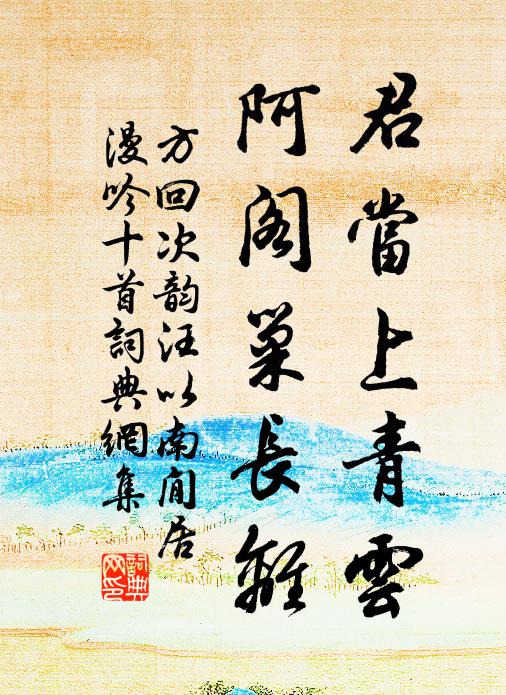 君當上青雲
阿閣巢長離
方回次韵汪以南閒居
漫吟十首詞典網集
詞典
网印